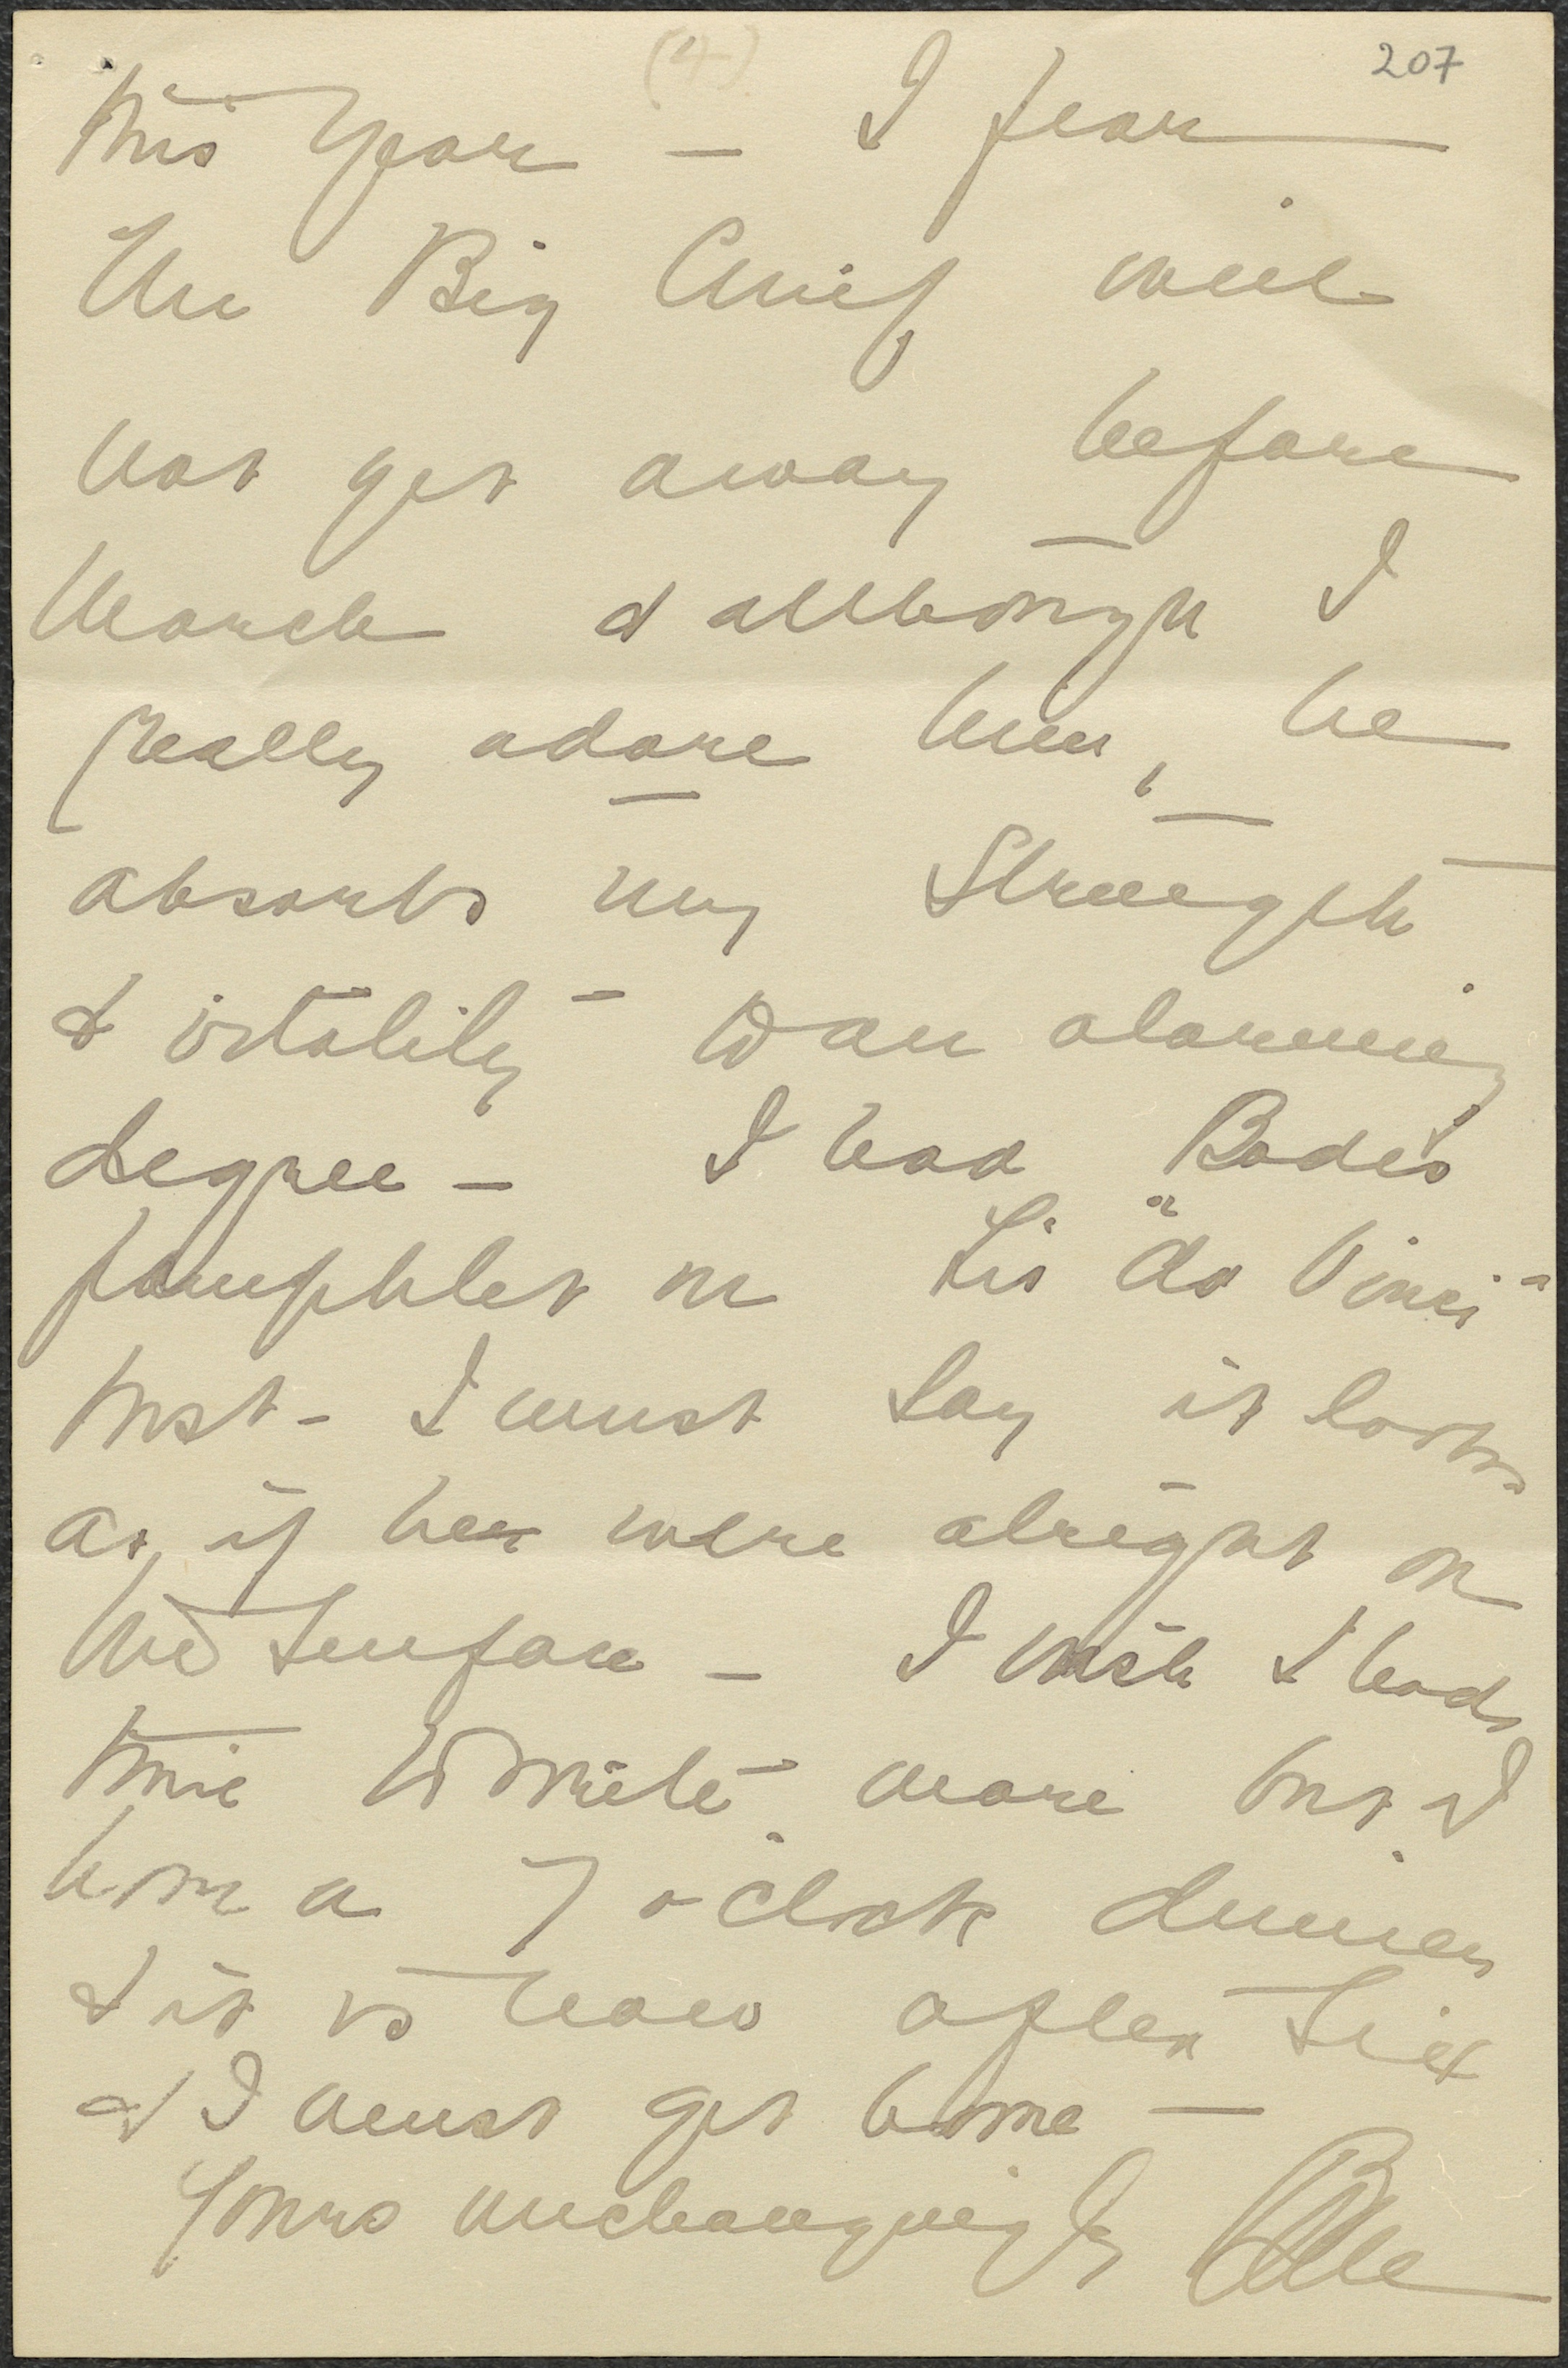 (4) 207
this year — I fear
the Big Chief will
not get away before
March & although I
really adore him, he
absorbs my strength
& vitality to an alarming
degree — I had Bode's
pamphlet on his "da Vinci"
bust - I must say it looks
as if he were alright on
the surface — I wish I had
time to write more but I
have a 7 o'clock dinner
& it is now after six
& I must get home —
Yours unchangingly Belle